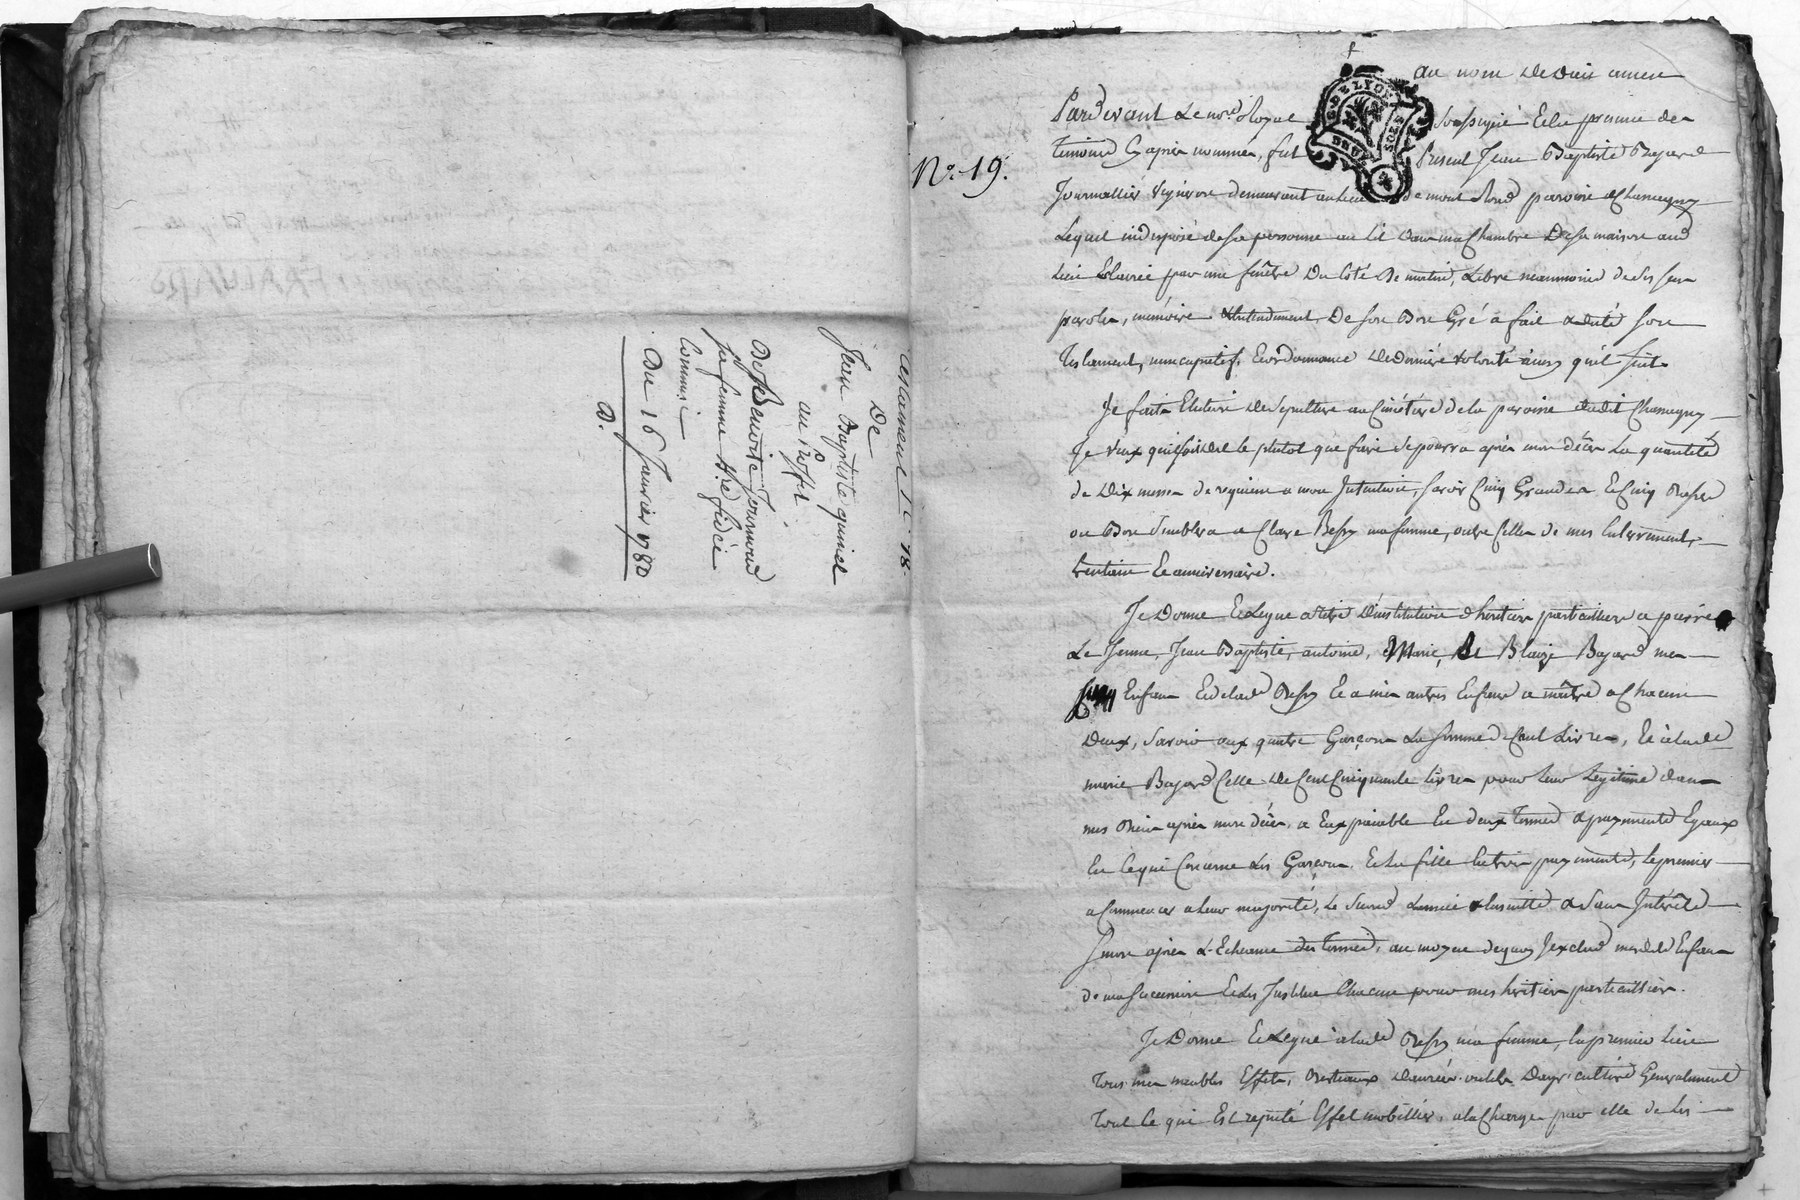 De
Jean Baptiste quinet
au Proffit
De Benoite Tournoud
sa femme h.re fidéi
Commis
Du 16 Janvier 1780
N.° 19.
au nom de dieu amen
G. DE LYON
DEUX SOLS
Pardevant Le no.re Royal Soussigné Et En presence des
Temoins Cy après nommés, fut Présent Jean Baptiste Bajard
Journallier Vigneron demeurant au lieu de mont Rond paroisse de Chamagny
Lequel indisposé de sa personne au lit dans une Chambre De sa maison aud
lieu Eclairée par une fenêtre Du Coté De matin, Libre neanmoins de ses sens
parole, mémoire & Entendement, De son Bon Gré a fait & dicté son
Testament, nuncupatif, Et ordonnance de dernière volonté ainsy qu'il suit
Je fait Election de sepulture au Cimetière de la paroisse dudit Chamagny
Je veux qu'il soit dit le plutot que faire se pourra après mon décès La quantité
de Dix messes de requiem a mon Intention, savoir Cinq Grandes Et Cinq Basses
ou Bon Semblera a Claire Bessy ma femme, outre Celles de mes Enterrement,
trentain Et anniversaire.
Je Donne Et Legue a titre D'institution d'héritier particulliers a pierre
Le Jeune, Jean Baptiste, antoine, Marie, Et Blaize Bajard mes
Enfans Et de lad. Bessy Et a mes autres Enfans a naître a Chacun
Deux, Savoir aux quatre Garçons La somme de Cent Livres, Et à lade
marie Bajard Celle de Cent Cinquante livres pour leur Legitime dans
mes Biens après mon décès, a Eux paiable En deux Termes & payements Egaux
En Ce qui Concerne Les Garçons, Et La fille En trois payements, le premier
a Commencer a leur majorité, Le Second L'année Ensuitte & Sans Intérêts
Sinon après L'Echeance des Termes, au moyen de quoy J'exclus mesdits Enfans
de ma Succession Et les Institue Chacun pour mes héritiers particulliers.
Je Donne Et Legue à lade Bessy ma femme, En premier Lieu
Tous mes meubles Effets, Bestiaux Danrées outils D'agriculture Generalement
Tout Ce qui Est reputé Effet mobillier, a la Charge par elle de Les